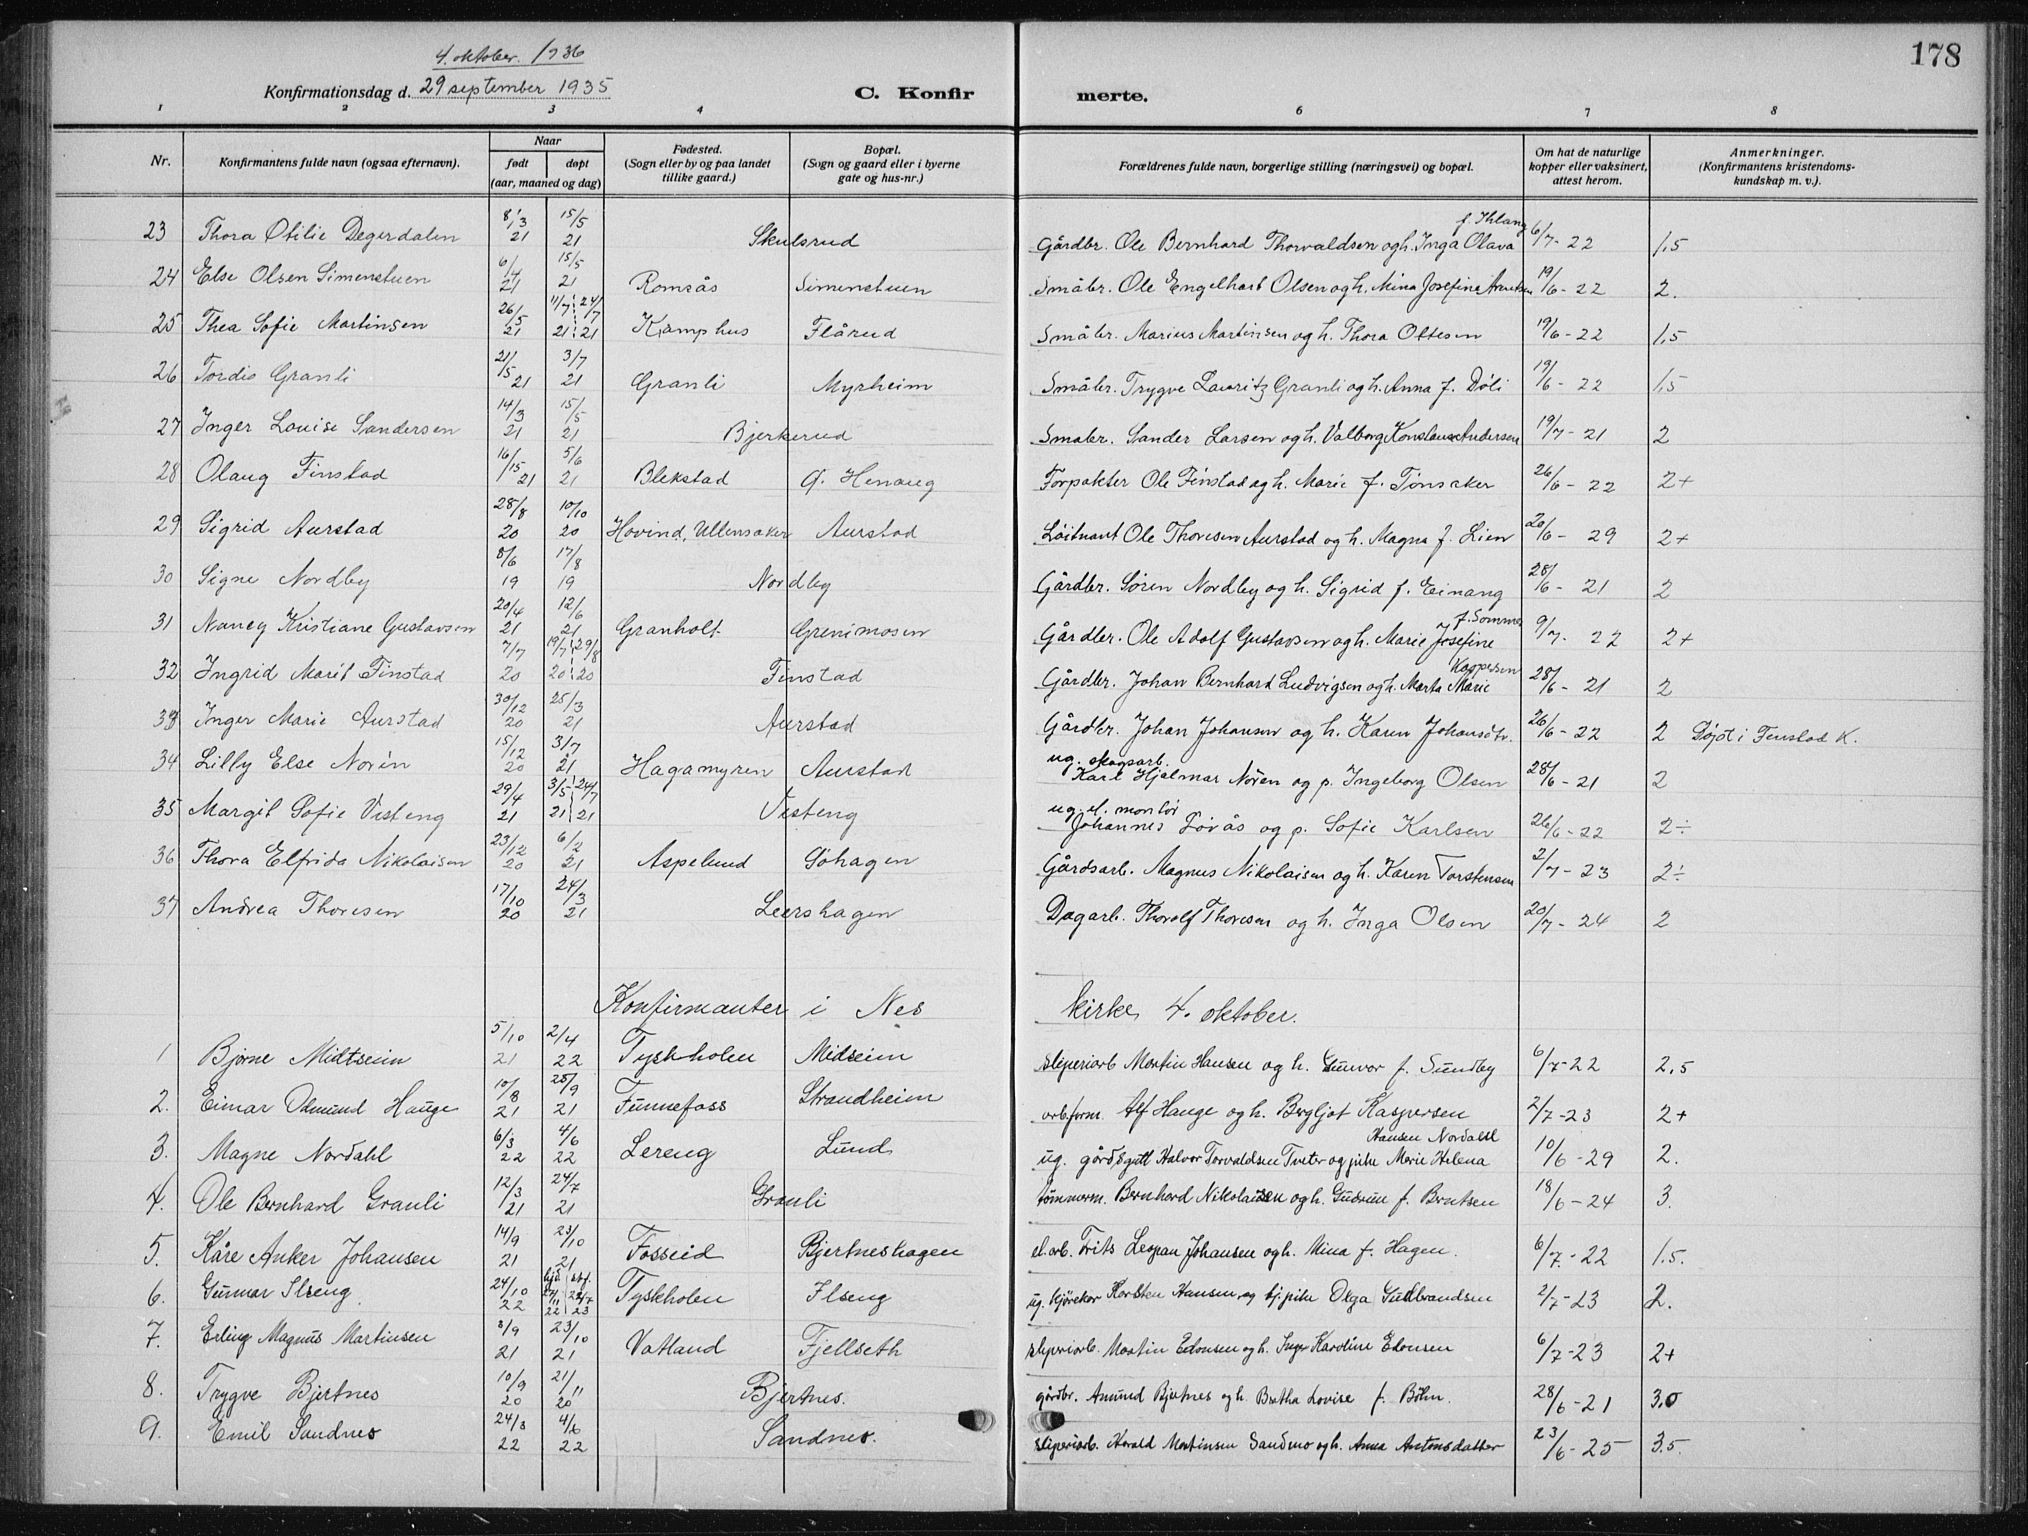 178
4. oktober. 1936
Konfirmationsdag d. 29 september 1935
C. Konfir merte.
1 2 3 4 6 7 8
Nr.
Konfirmantens fulde navn (ogsaa efternavn).
Naar
født døpt
(aar, maaned og dag)
Fødested.
(Sogn eller by og paa landet
tillike gaard.)
Bopæl.
(Sogn og gaard eller i byerne
gate og hus-nr.)
Forældrenes fulde navn, borgerlige stilling (næringsvei) og bopæl.
Om hat de naturlige
kopper eller vaksinert,
attest herom.
Anmerkninger.
(Konfirmantens kristendoms-
kundskap m. v.).
23 Thora Otilie Degerdalen 8/3 21 15/5 21 Skulsrud Gårdbr. Ole Bernhard Thorvaldsen og h. Inga Olava f. Ihlang 6/7 - 22 1,5
24 Else Olsen Simenstuen 21 15/5 21 Romsås Simenstuen Småbr. Ole Engelhart Olsen og h. Mina Josefine Arentsen 19/6 - 22 2.
25 Thea Sofie Martinsen 26/5 21 11/7 21 24/7 21 Kamphus Flårud Småbr. Marius Martinsen og h. Thora Ottesen 19/6 - 22 1,5
26 Tordis Granli 21/5 21 3/7 21 Granli Myrheim Småbr. Trygve Lauritz Granli og h. Anna f. Døli 19/6 - 22 1,5
27 Inger Louise Sandersen 14/3 21 15/5 21 Bjerkerud Smabr. Sander Larsen og h. Valborg Konstanse Andersen 19/7 - 21 2
28 Olaug Finstad 16/15 21 5/6 21 Blekstad G. Henaug Forpakter Ole Finstad og h. Marie f. Tønsaker 26/6 - 22 2+
29 Sigrid Aurstad 28/8 20 10/10 20 Hovind, Ullensaker Aurstad Løitnant Ole Thoresen Aurstad og h. Magna f. Lien 20/6 - 29 2+
30 Signe Nordby 8/6 19 17/8 19 Nordby Gårdbr. Søren Nordby og h. Sigrid f. Einang 28/6 - 21 2
31 Nancy Kristiane Gustavsen 20/4 21 12/6 21 Granholt Grenimosen Gårdbr. Ole Adolf Gustavsen og h. Marie Josefine f. Sommer 9/7 - 22 2+
32 Ingrid Marit Finstad 7/7 20 19/7 20 29/8 20 Finstad Gårdbr. Johan Bernhard Ludvigsen og h. Marta Marie Kaspersen 28/6 - 21 2
33 Inger Marie Aurstad 30/12 20 25/3 21 Aurstad Gårdbr. Johan Johansen og h. Karen Johansdtr. 26/6 - 22 2 Døpt i Fenstad K.
34 Lilly Else Norèn 15/12 20 3/7 21 Hagamyren Aurstad ug. skogsarb. Karl Hjalmar Nóren og p. Ingeborg Olsen 28/6 - 21 2
35 Margit Sofie Visteng 29/4 21 3/5 21 24/7 21 Visteng ug. el. montør Johannes Løvås og p. Sofie Karlsen 26/6 - 22 2÷
36 Thora Elfrida Nikolaisen 23/12 20 6/2 21 Aspelund Søhagen Gårdsarb. Magnus Nikolaisen og h. Karen Torstensen 2/7 - 23 2÷
37 Andrea Thoresen 17/10 20 24/3 21 Leershagen Dagarb. Thorolf Thoresen og h. Inga Olsen 20/7 - 24 2
Konfirmanter i Nes kirke 4. oktober.
1 Bjørne Midtseim 5/10 21 2/4 22 Tyskholen Midseim sliperiarb Martin Hansen og h. Gunvor f. Sundby 6/7 - 22 2,5
2. Einar Osmund Hauge 10/8 21 25/9 21 Funnefoss Strandheim arb.form. Alf Hauge og h. Bergljot Kaspersen 2/7 - 23 2+
3. Magne Nordahl 6/3 22 4/6 22 Lereng Lund ug. gårdsgutt Halvor Torvaldsen Tveter og pike Marie Helena Hansen Nordahl 10/6 - 29 2.
4. Ole Bernhard Granli 12/3 21 24/7 21 Granli tømmerm. Bernhard Nikolaisen og h. Gudrun f. Berntsen 18/6 - 24 3.
5. Kåre Anker Johansen 14/9 21 23/10 21 Fosseid Bjertneshagen el. arb. Frits Johansen og h. Mina f. Hagen. 6/7 - 22 1.5.
6. Gunnar Ilseng 24/10 22 hjd. 22 stf. 23 Tyskholen Ilseng ug. kjørekar Karsten Hansen og pike Olga Gudbrandsen 2/7 - 23 2.
7. Erling Magnus Martinsen 3/9 21 23/10 21 Vatland Fjellseth sliperiarb. Martin Edonsen og h. Inga Karoline Edonsen 6/7 - 23 2+
8. Trygve Bjertnes 10/9 20 21/11 20 Bjertnes. gårdbr. Amund Bjertnes og h. Bertha Lovise f. Bøhn. 28/6 - 21 3.0
9. Emil Sandnes 24/3 22 4/6 22 Sandnes. sliperiarb. Harald Martinsen Sandmo og h. Anna Antonsdatter 23/6 - 25 3.5.